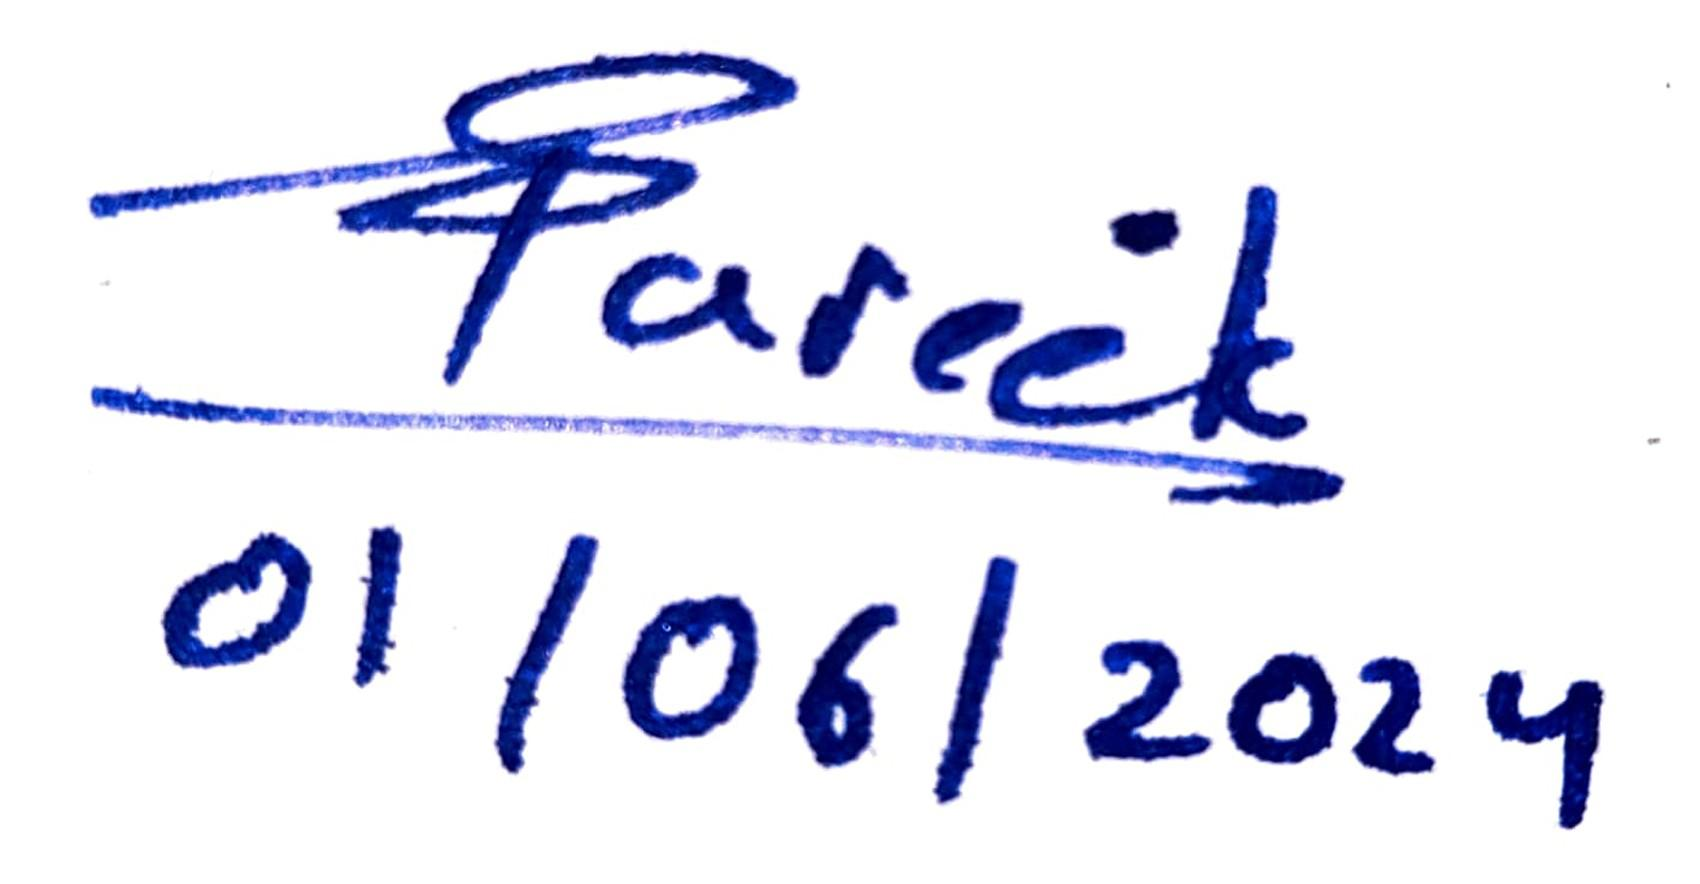 Pareek
01/06/2024